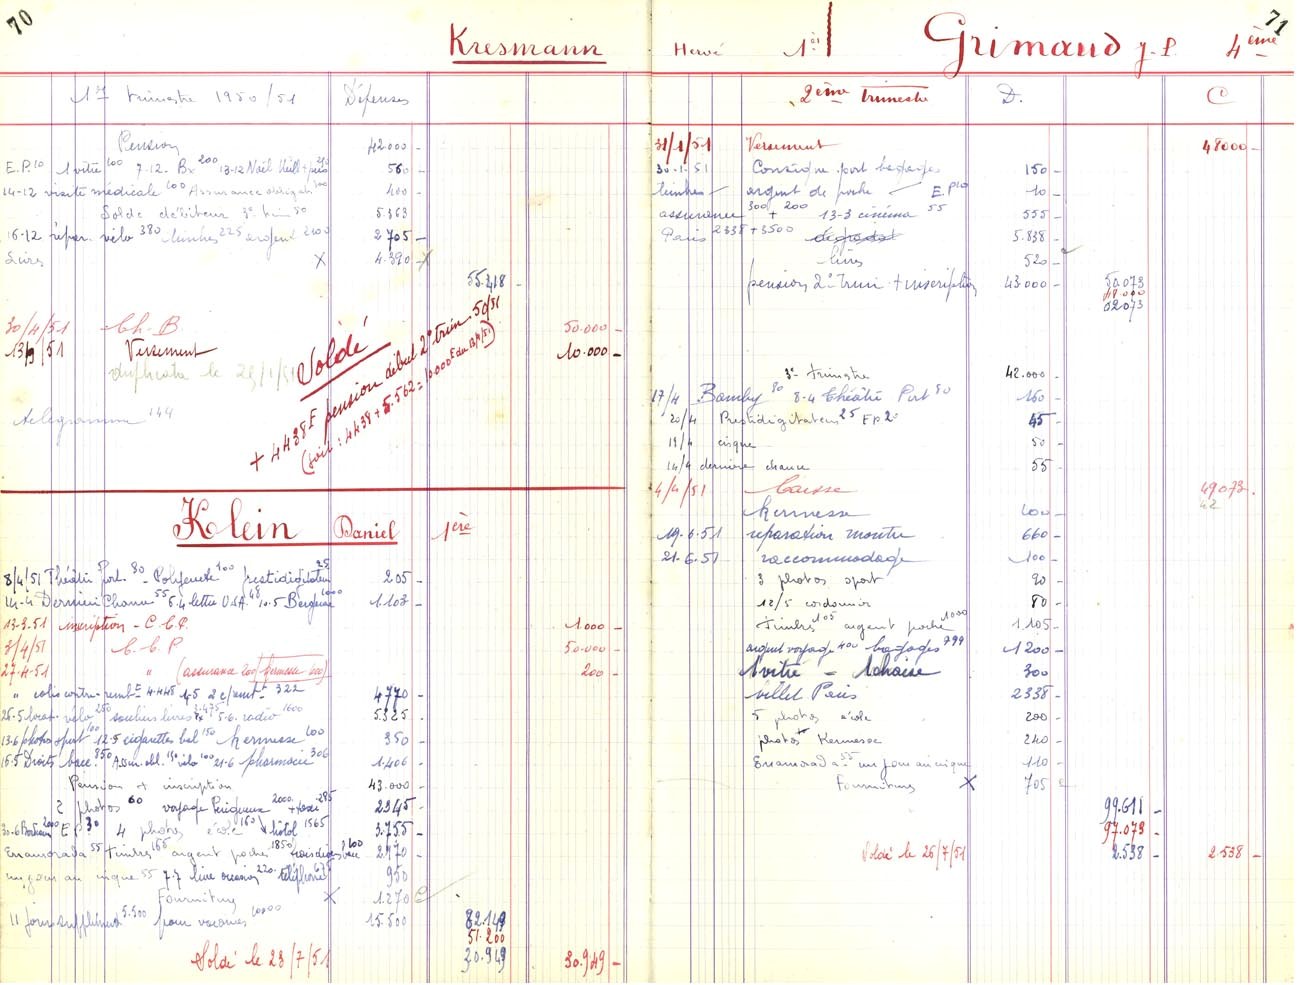 70
Kresmann Hervé 1ère
1er trimestre 1950/51 Dépenses
Pension 42000 -
E.P.10 1 vitre 100 7-12. Bx 200 13-12 Noël 560 -
14-12 visite médicale 100 Assurance obligat 300 400 -
Solde débiteur 3e trim 50 5.363
16-12 répar. vélo 380 timbres 225 argent 2100 2705 -
Livres X 4.390 - X
55.418 -
30/4/51 Ch. B. 50.000 -
13/9/51 Versement 10.000 -
duplicata le 23/1/51
telegramme 144
Soldé
+ 4438F pension début 2e trim. 50/51
(soit : 4438 + 5.562 = 10.000F du 13/9/51)
Klein Daniel 1ère
8/4/51 Théâtre Port. 80 - Polyeucte 100 prestidigitateur 25 205 -
14-4 Dernière Chance 55 5.4 lettre USA 48 10.5 Bergerac 1000 1.103 -
13-3.51 inscription - C.C.P. 1.000 -
3/4/51 C.C.P 50.000 -
27-4-51 " (assurance 100 / kermesse 100) 200 -
" colis contre-rembt 4.448 1-5 2e/rembt 322 4770 -
25-5 locat. vélo 250 soutien livres 3.475 5.6. radio 1600 5325 -
13.6 photos sport 100 12-5 cigarettes bal 150 kermesse 100 350 -
15.5 Droits bacc. 850 Assur. obl. 150 vélo 100 21-6 pharmacie 306 1.406 -
Pension + inscription 43.000 -
2 photos 60 voyage Périgueux 2000 + taxi 285 2345 -
30-6 Bordeaux 2000 E.P. 30 4 photos école 160 hôtol 1565 3.755 -
Enamorada 55 timbres 165 argent poche 1850 2170 -
un jour au cirque 55 7-7 livre 220 téléphone 675 950
Fournitures X 1.270
11 jours supplément 5.500 pour vacances 10000 15.500 82.149
51.200
Soldé le 23/7/51 30.949 30.949 -
71
Grimaud J. P. 4ème
2ème trimestre D. C
31/1/51 Versement 48000 -
30-1-51 Consigne port bagages 150 -
timbres argent de poche E.P10 10 -
assurance 300 + 200 13-3 cinéma 55 555 -
Paris 2338 + 3500 5.838 -
livres 520 -
pension 2e Trim + inscription 43.000 - 50.073
48.000
02073
3e trimestre 42.000 -
17/4 Bamby 80 8-4 théâtre Port 80 160 -
20/4 Prestidigitateur 25 EP 20 45 -
19/4 cirque 50 -
14/4 dernière chance 55 -
4/4/51 Caisse 49073.
kermesse 100 - 42
19-6-51 réparation montre 660 -
21-6.51 raccommodage 100 -
3 photos sport 90 -
12/5 cordonnier 80 -
timbres 105 argent poche 1000 1105 -
argent voyage 400 bagages 799 1200 -
1 vitre - 1 chaise 300
billet Paris 2338 -
5 photos école 200 -
photos Kermesse 240 -
Enamorada 55 un jour au cirque 110 -
Fournitures X 705
99.611 -
97.073 -
Soldé le 26/7/51 2.538 - 2.538 -